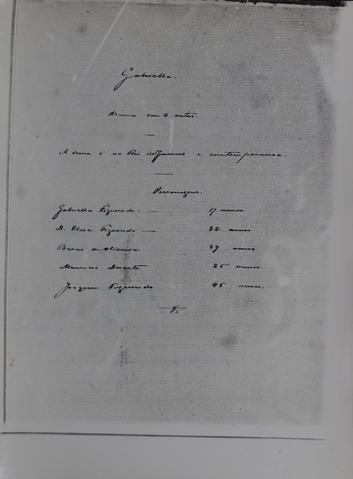 Gabriella.
drama em 4 actos.
A scena é no Rio de Janeiro e contemporanea.
Personagens.
Gabriella Figueredo — 17 annos.
D. Figueredo — 22 annos.
Barão de Oliveira 37 annos
Mauricio Duarte 25 annos
Joaquim Figueredo 45 annos.